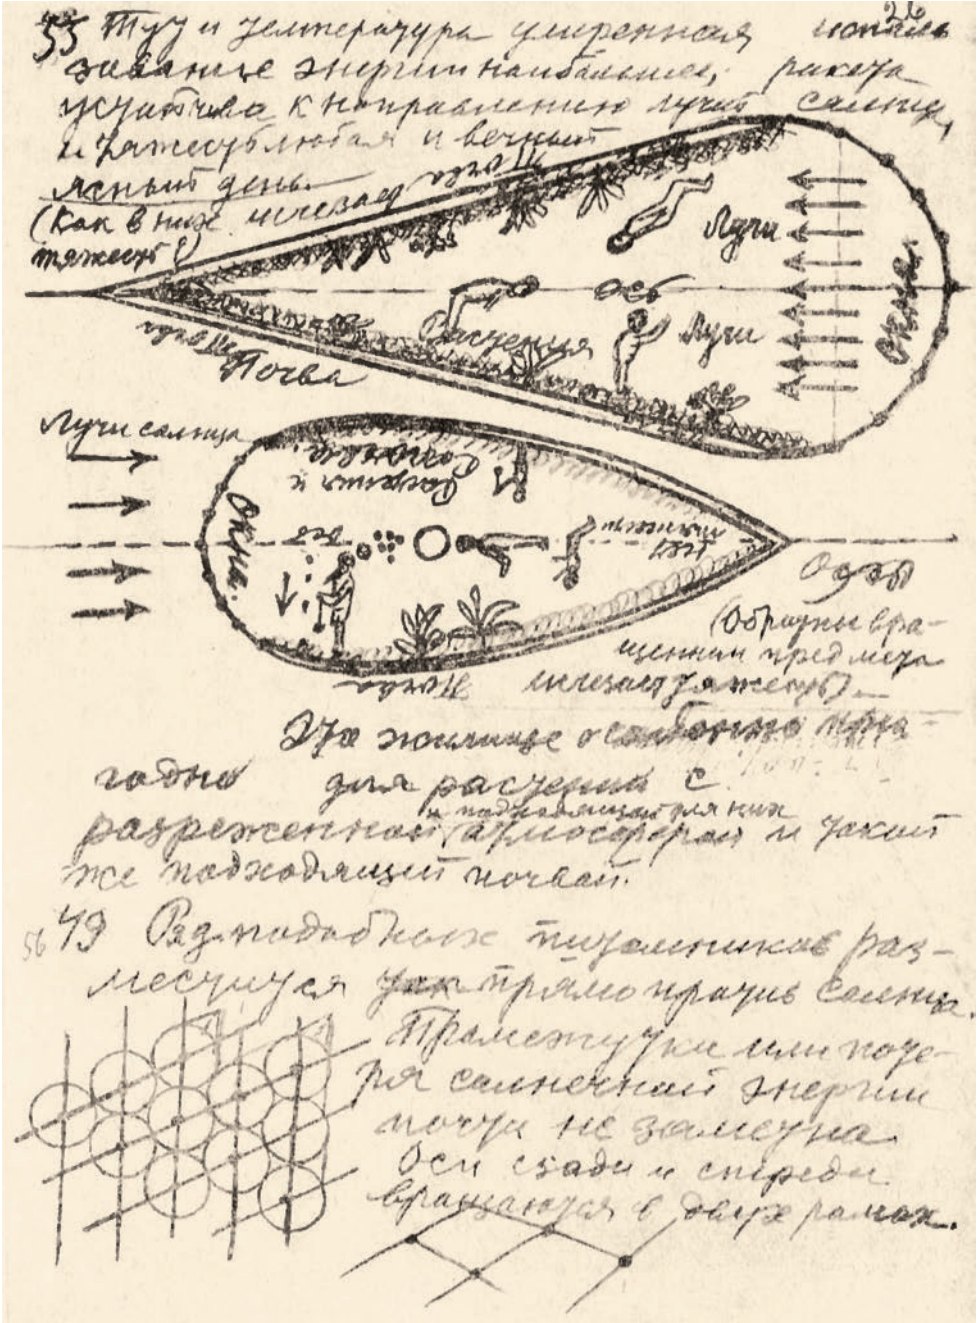 26
55 Тут и температура умеренная исполь
зование энергии наибольшее, ракета
устойчива к направлению лучей солнца,
и тяжесть любая и вечный
ясный день.
(Как в них исчезает
тяжесть?)
Почва
Лучи
Окна.
Ось
Лучи
Растения
Почва
Почва
Лучи солнца
Растения и
Окна.
Ось
тяжести
Ось
(Образны вра-
щении предмета
исчезает тяжесть).—
Это жилище особенно при-
годно для растений с
и подходящая для них
разреженной атмосферой и такой
же подходящей почвой.
56 49 Ряд подобных питомников раз-
местится так прямо против солнца.
Промежутки или поте-
ря солнечной энергии
почти не заметна.
Оси сзади и спереди
вращаются в двух рамах.